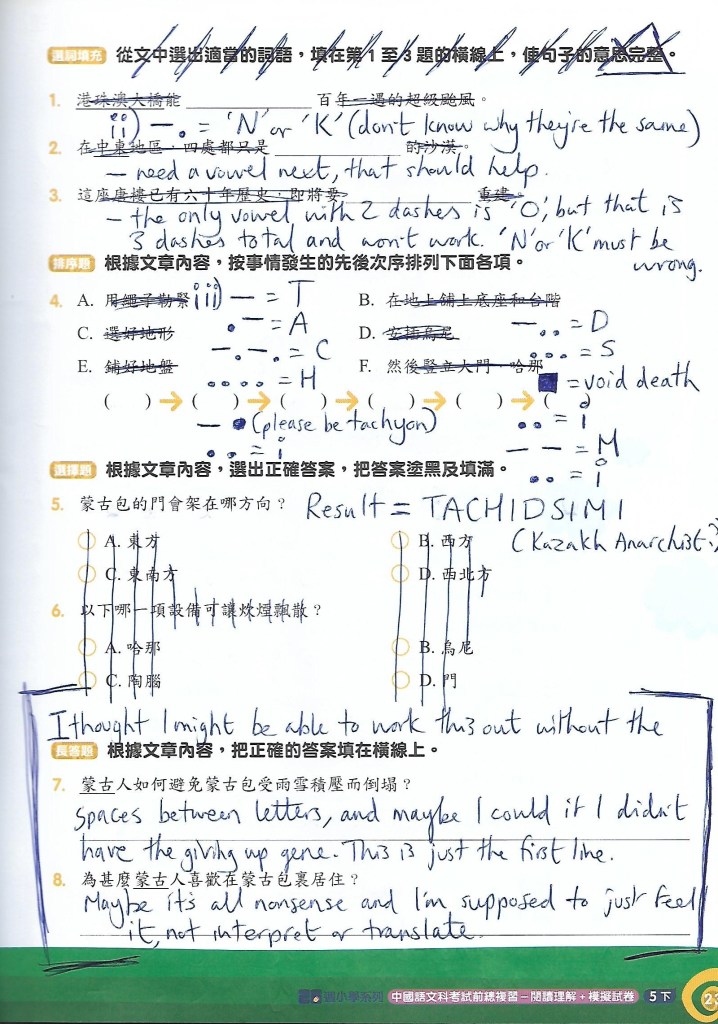 選詞填充 從文中選出適當的詞語，填在第1至3題的橫線上，使句子的意思完整。
1. 港珠澳大橋能 ____________ 百年一遇的超級颱風。
ii) — . = 'N' or 'K' (don't know why they're the same)
2. 在中東地區，四處都只是 ____________ 的沙漠。
— need a vowel next, that should help.
3. 這座唐樓已有六十年歷史，即將要 ____________ 重建。
– the only vowel with 2 dashes is 'O', but that is
3 dashes total and won't work. 'N' or 'K' must be
wrong.
排序題 根據文章內容，按事情發生的先後次序排列下面各項。
4. A. 用繩子勒緊 iii) — = T B. 在地上鋪上底座和台階
. — = A
C. 選好地形 D. 安插烏尼 — . . = D
— . — . = C . . . = S
E. 鋪好地盤 F. 然後豎立大門、哈那
. . . . = H ■ = void death
( ) → ( ) → ( ) → ( ) → ( ) → ( )
— ● (please be tachyon) . . = i
. . = i — — = M
選擇題 根據文章內容，選出正確答案，把答案塗黑及填滿。
. . = i
5. 蒙古包的門會架在哪方向？ Result = TACHIDSIMI
A. 東方 B. 西方 (Kazakh Anarchist?)
C. 東南方 D. 西北方
6. 以下哪一項設備可讓炊煙飄散？
A. 哈那 B. 烏尼
C. 陶腦 D. 門
I thought I might be able to work this out without the
長答題 根據文章內容，把正確的答案填在橫線上。
7. 蒙古人如何避免蒙古包受雨雪積壓而倒塌？
spaces between letters, and maybe I could if I didn't
have the giving up gene. This is just the first line.
8. 為甚麼蒙古人喜歡在蒙古包裏居住？
Maybe it's all nonsense and I'm supposed to just feel
it, not interpret or translate.
小學系列 中國語文科考試前總複習－閱讀理解＋模擬試卷 5下 23